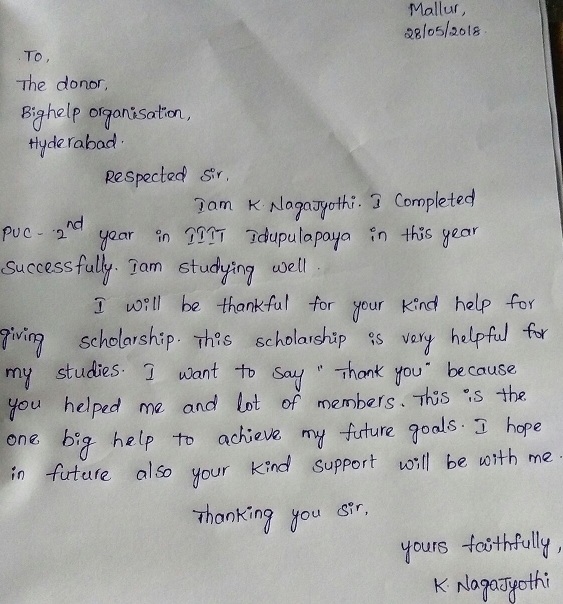 Mallur,
28/05/2018
To,
The donor,
Bighelp organisation,
Hyderabad.
Respected Sir,
Iam K. NagaJyothi. I Completed
PUC - 2nd year in IIIT Idupulapaya in this year
Successfully. Iam studying well.
I will be thankful for your kind help for
giving scholarship. This scholarship is very helpful for
my studies. I want to say "Thank you" because
you helped me and lot of members. This is the
one big help to achieve my future goals. I hope
in future also your kind support will be with me.
Thanking you Sir,
yours faithfully,
K. NagaJyothi